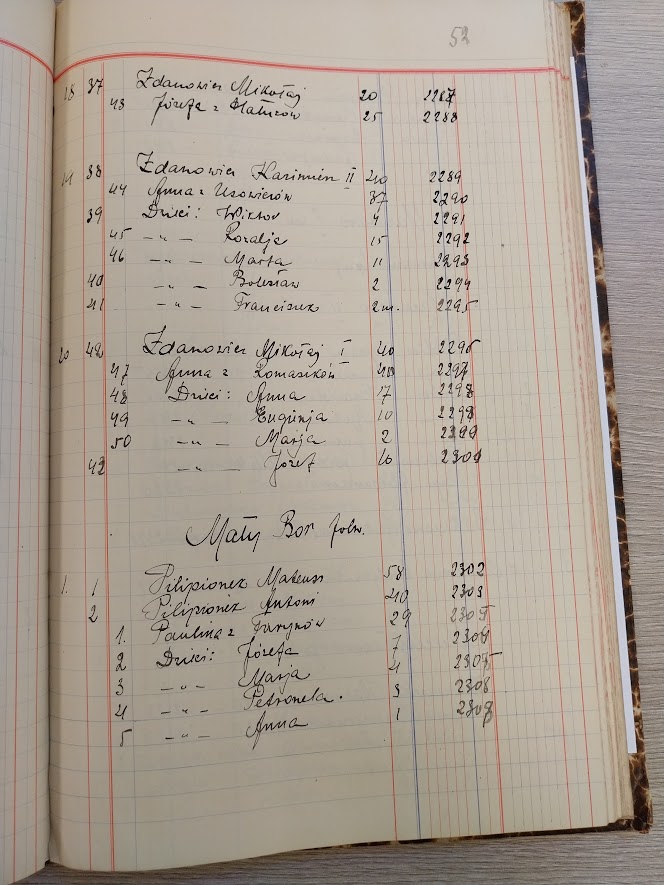 52
18 37 Zdanowicz Mikołaj 20 2287
43 Józefa z 25 2288
38 Zdanowicz Kazimierz II 40 2289
44 Anna z Usowiczów 37 2290
39 Dzieci: Wiktor 4 2291
45 -„- Rozalja 15 2292
46 -„- Marta 11 2293
40 -„- Bolesław 2 2294
41 -„- Franciszek 2 m. 2295
20 42 Zdanowicz Mikołaj I 40 2296
47 Anna z Tomasików 40 2297
48 Dzieci: Anna 17 2298
49 -„- Eugenja 10
50 -„- Marja 2
-„- Józef 16
Mały Bor folw.
1. 1 Pilipionek Mateusz 58 2302
2 Pilipionek Antoni 40 2303
1. Paulina z 29
2 Dzieci: Józefa 7
3 -„- Marja 4
4 -„- Petronela. 3
5 -„- Anna 1